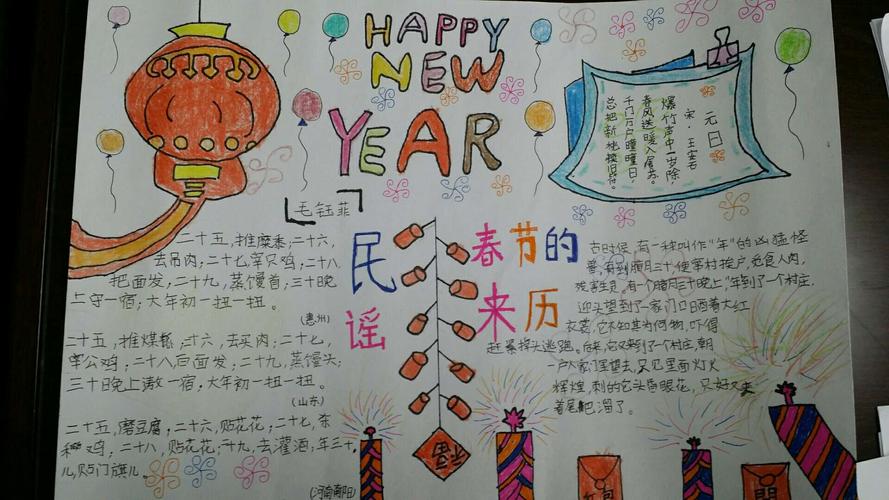 HAPPY
NEW
YEAR
元日
宋·王安石
爆竹声中一岁除,
春风送暖入屠苏。
千门万户曈曈日,
总把新桃换旧符。
毛钰菲
民谣
二十五,推糜黍;二十六,
去吊肉;二十七,宰只鸡;二十八
把面发;二十九,蒸馒首;三十晚
上守一宿;大年初一扭一扭。
二十五,推煤
二十六,去买肉;二十七,
宰公鸡;二十八后面发;二十九,蒸馒头;
三十日晚上熬一宿,大年初一扭一扭。
(山东)
二十五,磨豆腐;二十六,贴花花;二十七,杀
鸡,二十八,贴花花;二十九,去灌酒;年三十
儿,贴门旗儿
(河南南阳)
春节的
来历
古时候,有一种叫作"年"的凶猛怪
兽,每到腊月三十,便挨村挨户,觅食人肉,
残害生灵。有一个腊月三十晚上,"年"到了一个村庄,
迎头望到了一家门口晒着大红
衣裳,它不知其为何物,吓得
赶紧掉头逃跑。后来,它又来到了一个村庄,朝
一户人家门里望去,只见里面灯火
辉煌,刺的它头昏眼花,只好又夹
着尾巴溜了。
福